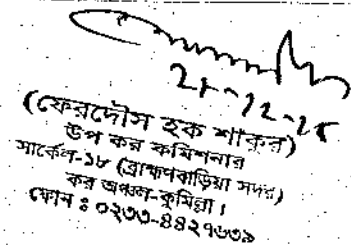 (ফেরদৌস হক শাকুর)
উপ কর কমিশনার
সার্কেল-১৮ (ব্রাহ্মণবাড়িয়া সদর)
কর অঞ্চল-কুমিল্লা।
ফোন ঃ ০২৩৩-৪৪২৭৬৩৯